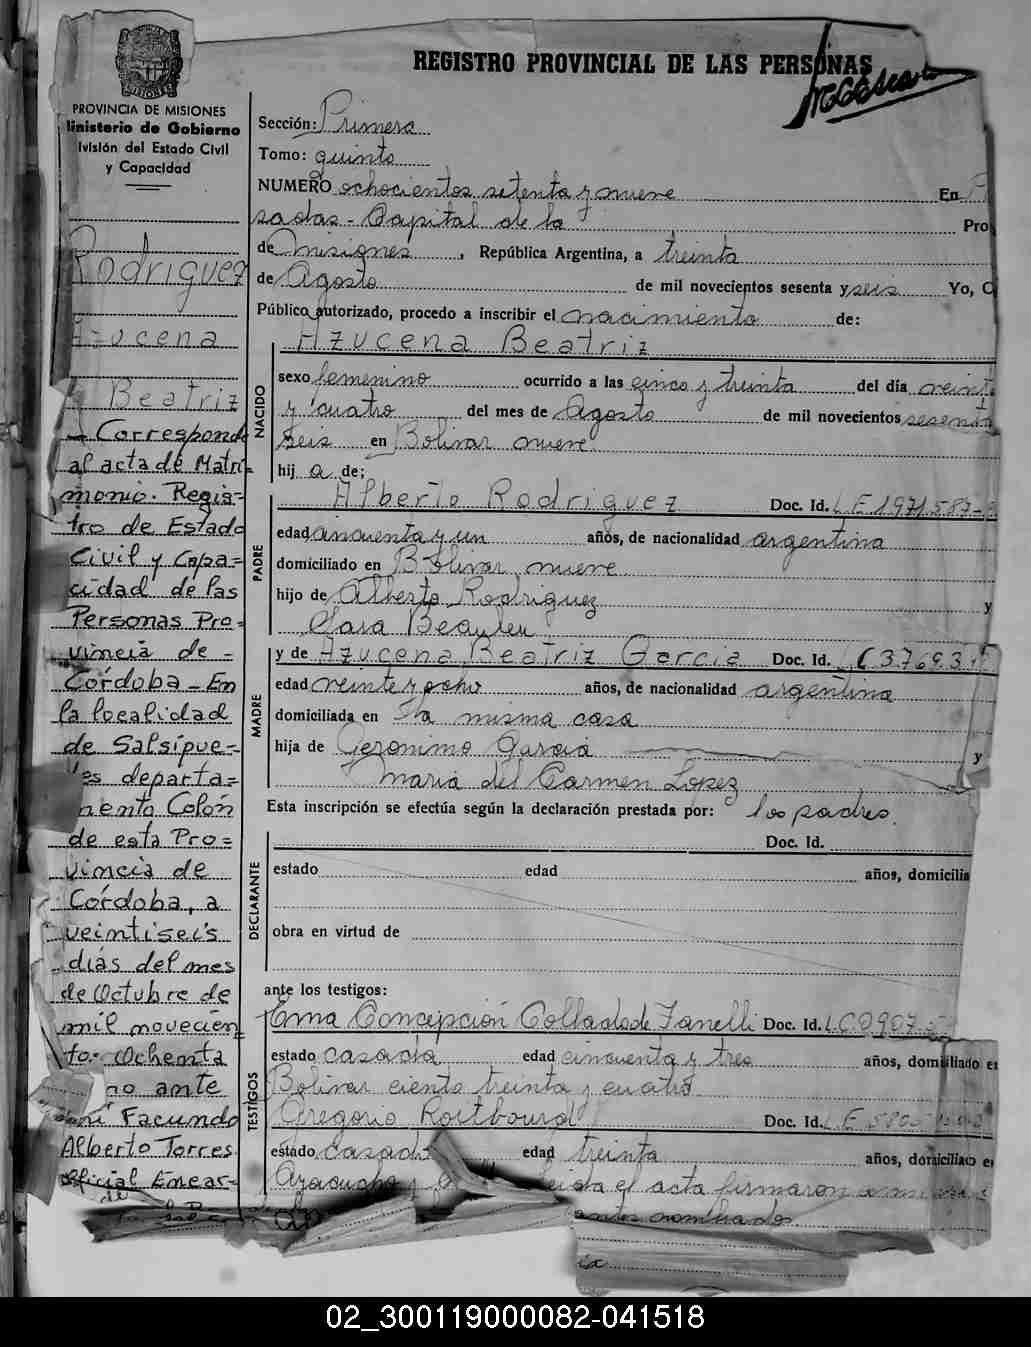 REGISTRO PROVINCIAL DE LAS PERSONAS
PROVINCIA DE MISIONES
inisterio de Gobierno
ivisión del Estado Civil
y Capacidad
Rodriguez
Azucena
Beatriz
Corresponde
al acta de Matri-
monio. Regis-
tro de Estado
Civil y Capa=
cidad de las
Personas Pro-
vincia de -
Córdoba - En
la localidad
de Salsipue-
es departa=
mento Colón
de esta Pro=
vincia de
Córdoba, a
veintiseis
días del mes
de Octubre de
mil novecien
tos ochenta
no ante
mí Facundo
Alberto Torres
oficial Encar-
de
Sección: Primera
Tomo: quinto
NUMERO ochocientos setenta y nueve En P
sadas - Capital de la Pro
de Misiones, República Argentina, a treinta
de Agosto de mil novecientos sesenta y seis Yo, O
Público autorizado, procedo a inscribir el nacimiento de:
NACIDO
Azucena Beatriz
sexo femenino ocurrido a las cinco y treinta del día veinte
y cuatro del mes de Agosto de mil novecientos sesenta
seis en Bolivar nueve
hij a de:
PADRE
Alberto Rodriguez Doc. Id. L E 1971587-
edad cincuenta y un años, de nacionalidad argentina
domiciliado en Bolivar nueve
hijo de Alberto Rodriguez y
Clara
MADRE
y de Azucena Beatriz Garcia Doc. Id. L C 376931
edad veinte y ocho años, de nacionalidad argentina
domiciliada en la misma casa
hija de Geronimo Garcia y
Maria del Carmen Lopez
Esta inscripción se efectúa según la declaración prestada por: los padres.
DECLARANTE
Doc. Id.
estado edad años, domicilia
obra en virtud de
ante los testigos:
TESTIGOS
Erna Concepción Collado de Zanelli Doc. Id. L C 0907
estado casada edad cincuenta y tres años, domiciliado en
Bolivar ciento treinta y cuatro
Gregorio Doc. Id. L E 580
estado casado edad treinta años, domiciliado en
Ayacucho y el acta firmaron
nombrados
02_300119000082-041518